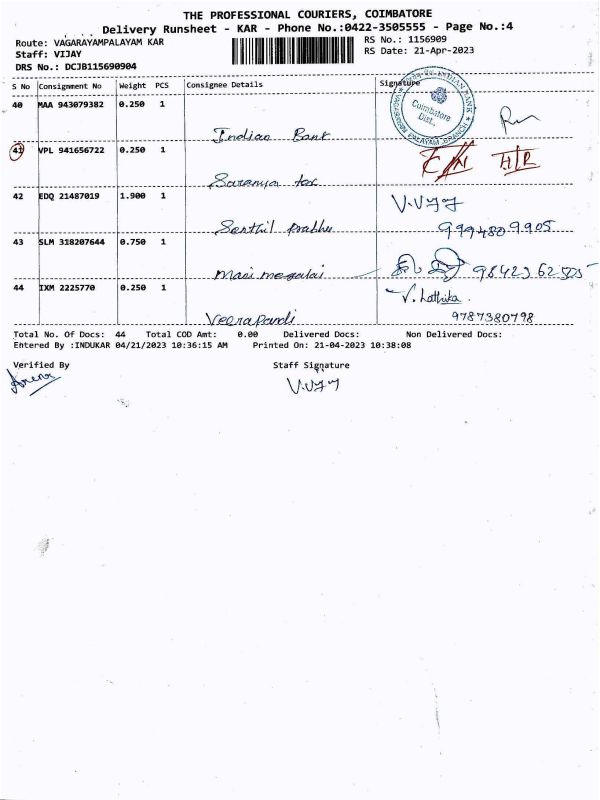 THE PROFESSIONAL COURIERS, COIMBATORE
Delivery Runsheet - KAR - Phone No.:0422-3505555 - Page No.:4
Route: VAGARAYAMPALAYAM KAR
RS No.: 1156909
Staff: VIJAY
RS Date: 21-Apr-2023
DRS No.: DCJB115690904
S No Consignment No Weight PCS Consignee Details Signature
40 MAA 943079382 0.250 1
Coimbatore
Dist.,
Indian Bank
41 VPL 941656722 0.250 1
Saranya tex
42 EDQ 21487019 1.900 1 V.Vijay
Senthil Prabhu 9994809905
43 SLM 318207644 0.750 1
Masi megalai
44 IXM 2225770 0.250 1 V. Lathika.
Veerapandi 9787380798
Total No. Of Docs: 44 Total COD Amt: 0.00 Delivered Docs: Non Delivered Docs:
Entered By :INDUKAR 04/21/2023 10:36:15 AM Printed On: 21-04-2023 10:38:08
Verified By Staff Signature
V.Vijay